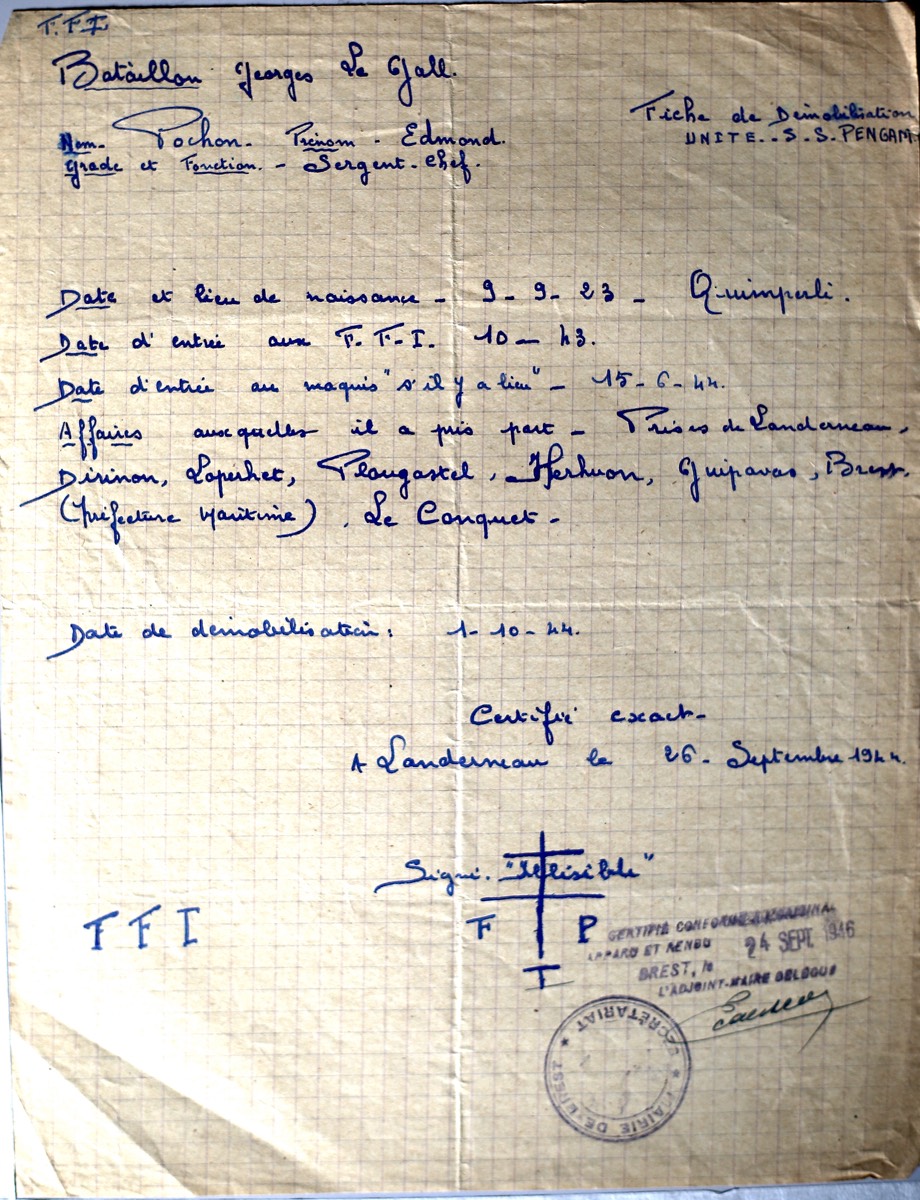 F.F.I
Bataillon Georges Le Gall.
Fiche de Démobilisation
Nom- Pochon- Prénom - Edmond.
UNITE.-S-S.PENGAM-
Grade et Fonction. - Sergent-chef.
Date et lieu de naissance - 9-9-23 - Quimperlé.
Date d'entrée aux F.F.I. 10-43.
Date d'entrée au maquis "s'il y a lieu" - 15-6-44.
Affaires auxquelles il a pris part - Prises de Landerneau,
Dirinon, Loperhet, Plougastel, Kerhuon, Guipavas, Brest.
(Préfecture Maritime). Le Conquet-
Date de démobilisation: 1-10-44.
Certifié exact-
A Landerneau le 26-Septembre 1944.
Signé. "Illisible"
F F I
F P
T
CERTIFIÉ CONFORME A L'ORIGINAL
APPARU ET RENDU
24 SEPT 1946
BREST, le
L'ADJOINT-MAIRE DELEGUE
SECRETARIAT
* MAIRIE DE BREST *